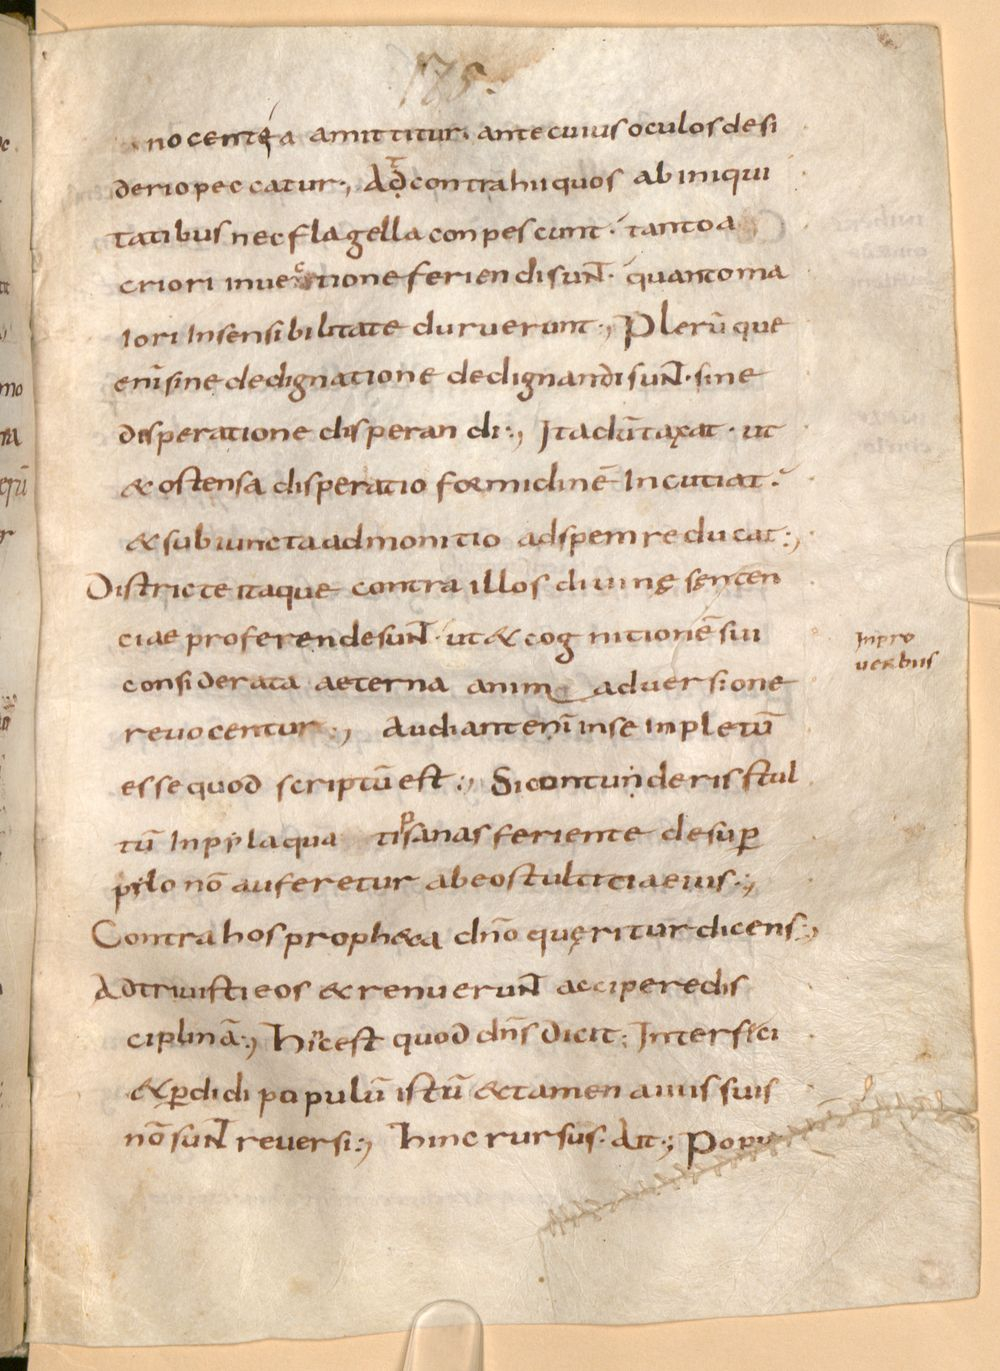 175.
nocentia amittitur. ante cuius oculos desi
derio peccatur:, At contra hii quos ab iniqui
tatibus nec flagella conpescunt. tanto a
criori inuectione feriendi sunt. quanto ma
iori insensibilitate duruerunt:, Plerūque
enī sine dedignatione dedignandi sunt. sine
disperatione disperandi:, Ita dūtaxat. ut
& ostensa disperatio formidinē incutiat.
& subiuncta admonitio ad spem reducat:,
Districte itaque contra illos diuinę senten
ciae proferende sunt. ut & cognitionē sui
considerata aeterna anim aduersione
reuocentur:, Audiant enī in se inpletū
esse quod scriptū est:, Si contunderis stul
tū in pyla qua tipsanas feriente desup̄
pilo nō auferetur ab eo stultitia eius:,
Contra hos proph&a dn̄o quęritur dicens:,
Adtriuisti eos & renuerunt accipere dis
ciplinā:, Hic est quod dn̄s dicit: Interfeci
& p̄didi populū istū & tamen a uiis suis
nō sunt reuersi:, Hinc rursus. Ait:, Popu
In pro
uerbiis